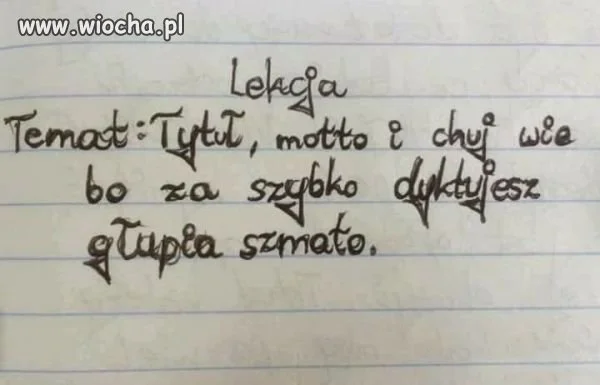 www.wiocha.pl
Lekcja
Temat: Tytuł, motto i chuj wie
bo za szybko dyktujesz
głupia szmato.